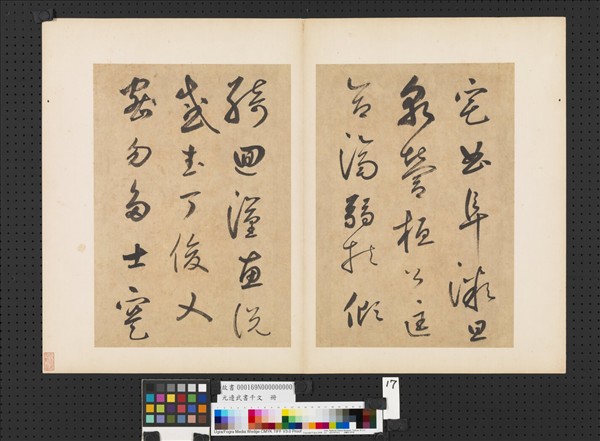 宅曲阜微旦
孰營桓公匡
合濟弱扶傾
綺迴漢惠說
感武丁俊乂
密勿多士寔
故書 000169N000000000
元邊武書千文 冊
17
Ugra/Fogra Media Wedge CMYK